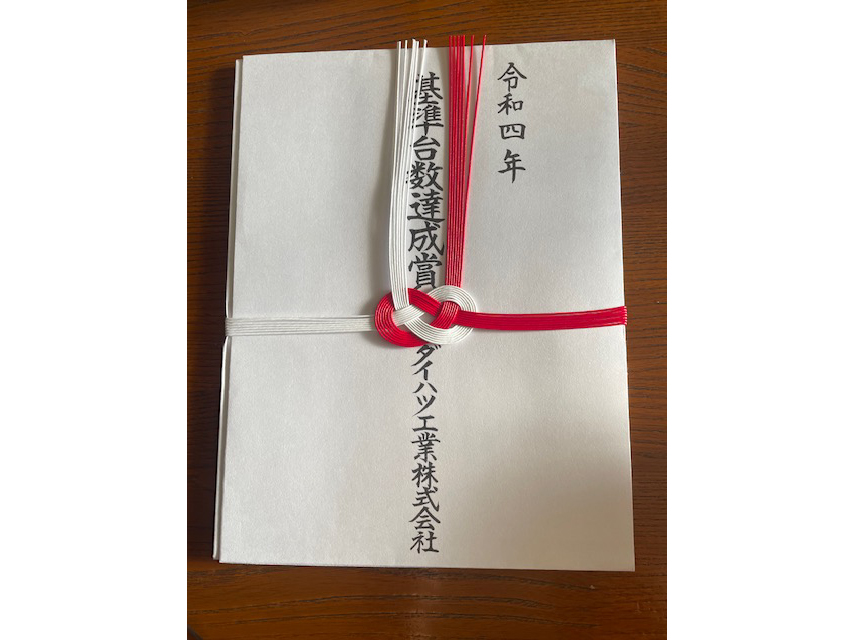 令和四年
基準台数達成賞
ダイハツ工業株式会社